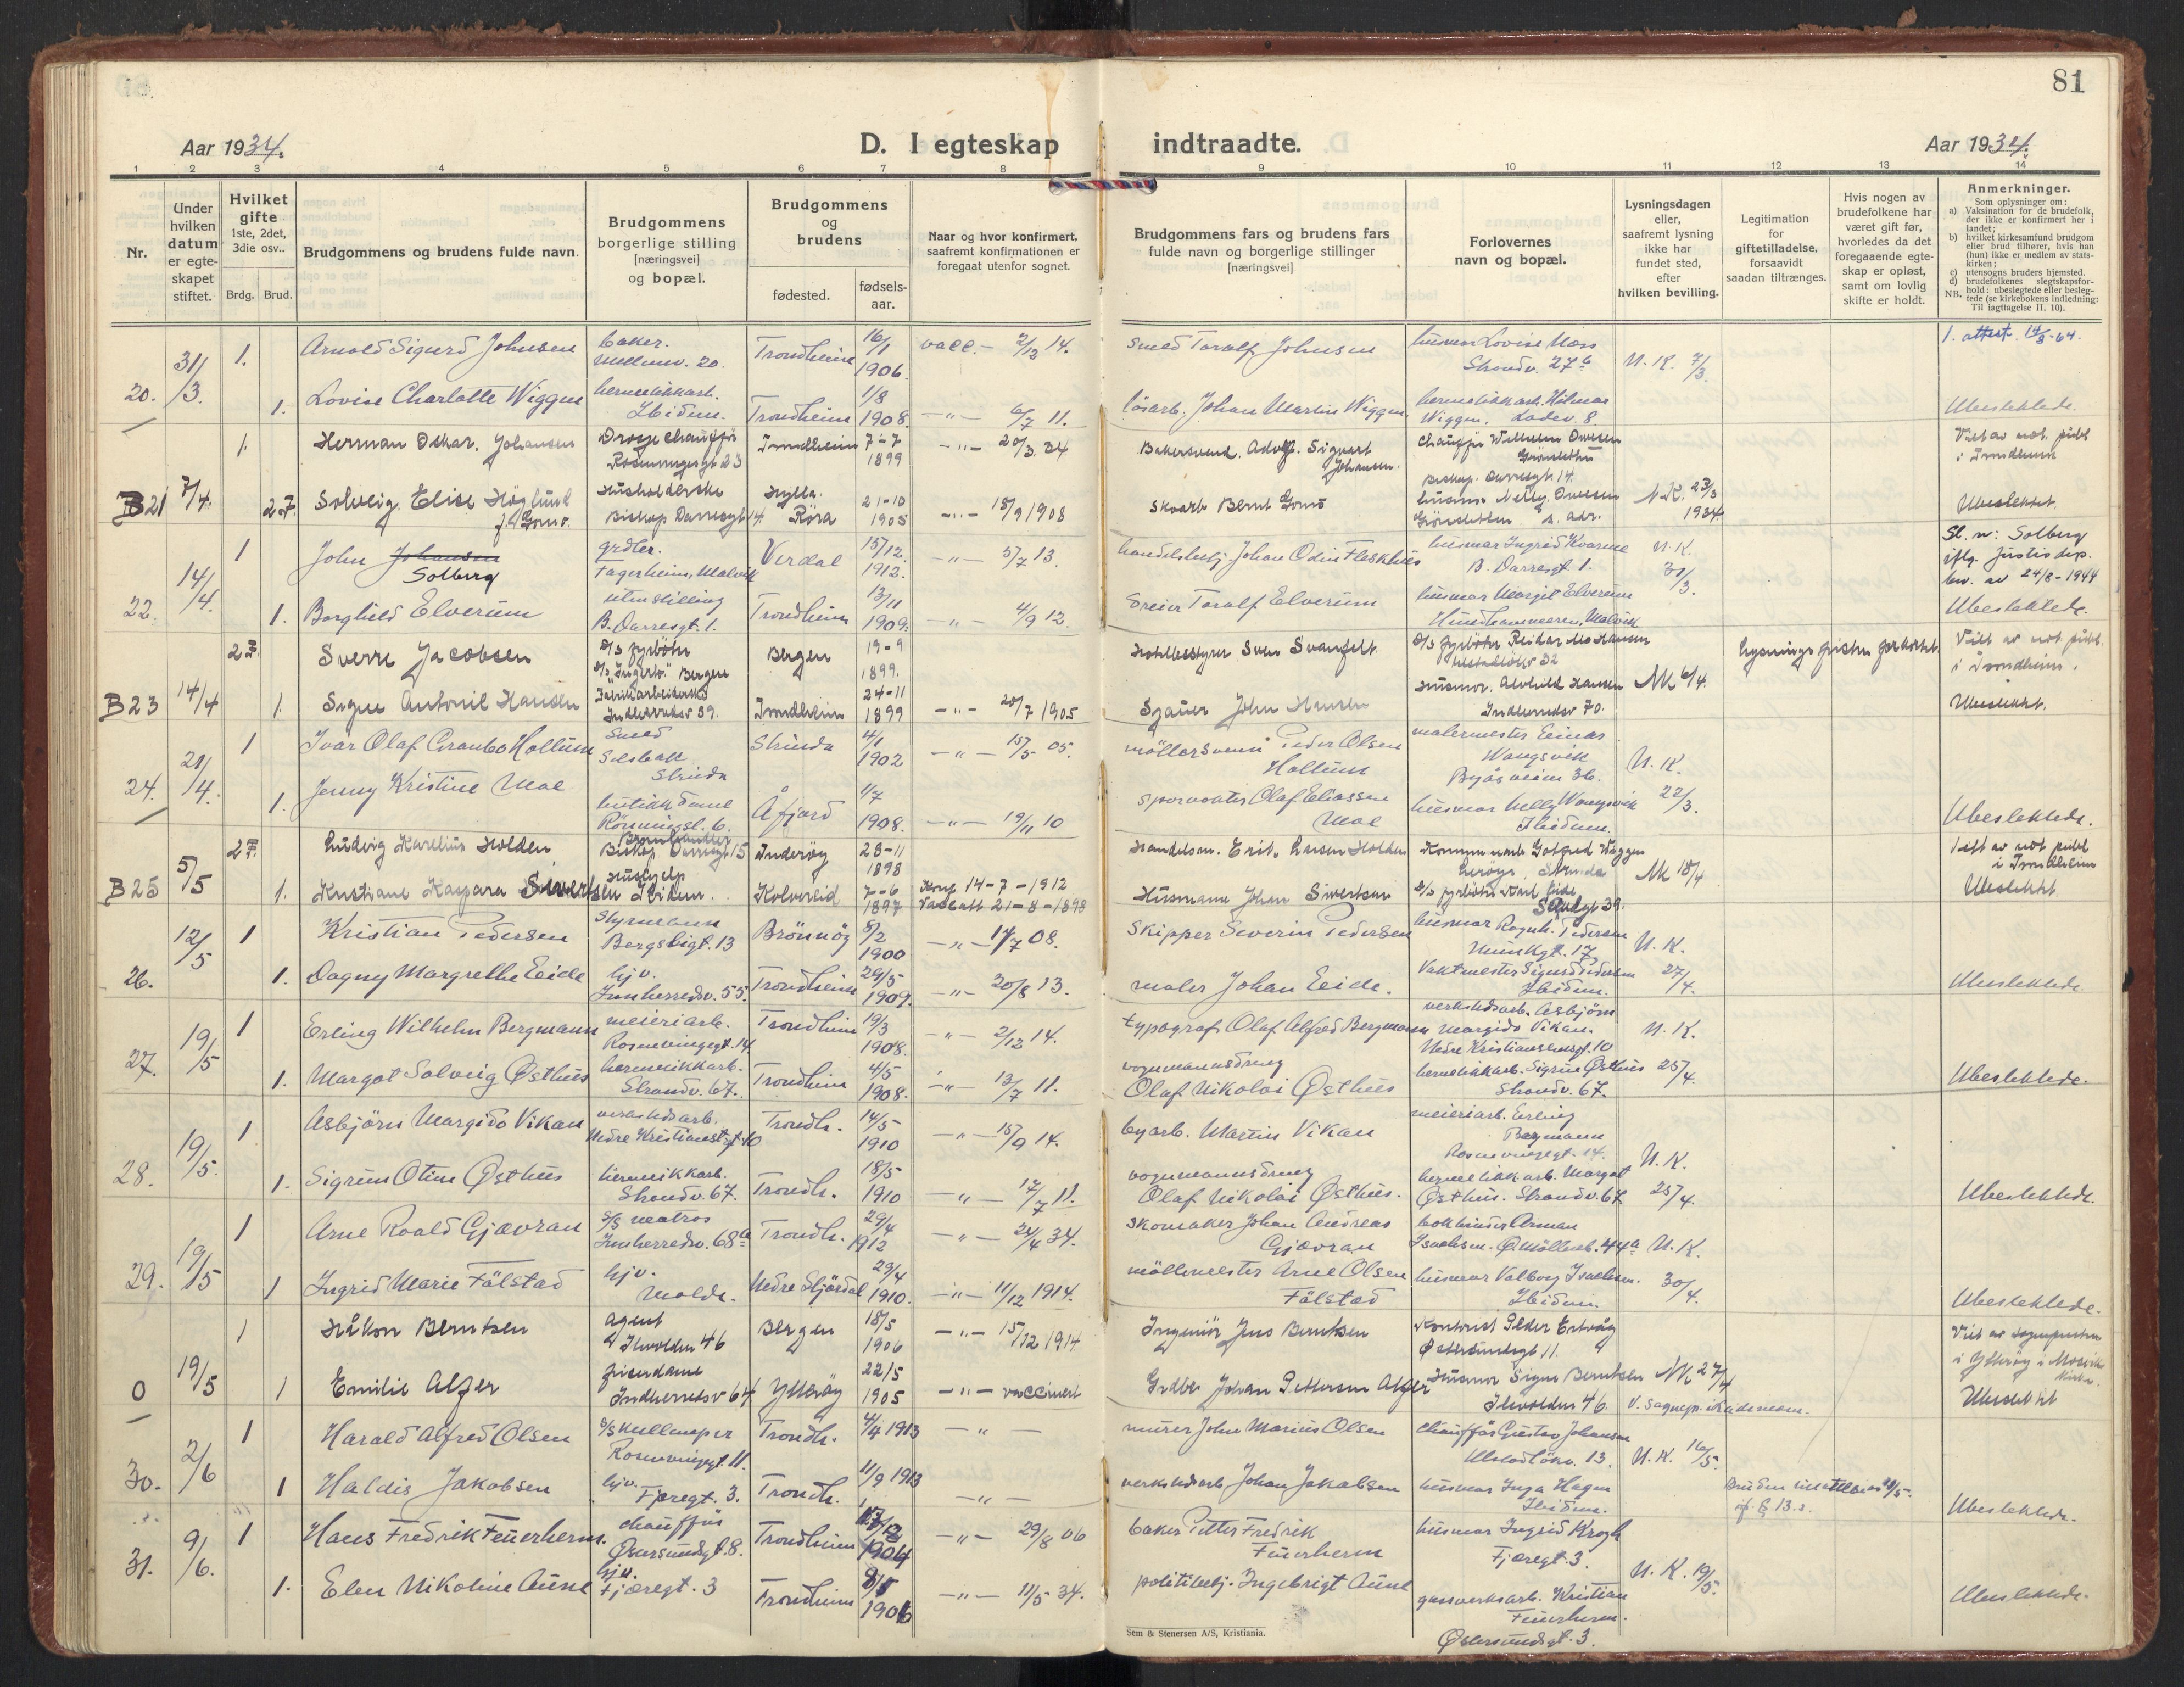 81
Aar 1934.
D. I egteskap indtraadte.
Aar 1934.
1 2 3 4 5 6 7 8 9 10 11 12 13 14
Nr.
Under hvilken datum er egteskapet stiftet.
Hvilket gifte 1ste, 2det, 3die osv..
Brdg. Brud.
Brudgommens og brudens fulde navn.
Brudgommens borgerlige stilling [næringsvei] og bopæl.
Brudgommens og brudens
fødested.
fødselsaar.
Naar og hvor konfirmert, saafremt konfirmationen er foregaat utenfor sognet.
Brudgommens fars og brudens fars fulde navn og borgerlige stillinger [næringsvei]
Forlovernes navn og bopæl.
Lysningsdagen eller, saafremt lysning ikke har fundet sted, efter hvilken bevilling.
Legitimation for giftetilladelse, forsaavidt saadan tiltrænges.
Hvis nogen av brudefolkene har været gift før, hvorledes da det foregaaende egteskap er opløst, samt om lovlig skifte er holdt.
Anmerkninger.
Som oplysninger om:
a) Vaksination for de brudefolk, der ikke er konfirmert her i landet;
b) hvilket kirkesamfund brudgom eller brud tilhører, hvis han (hun) ikke er medlem av statskirken;
c) utensogns bruders hjemsted.
d) brudefolkenes slegtskapsforhold: ubeslegtede eller beslegtede (se kirkebokens indledning:
NB. Til iagttagelse II. 10).
20. 31/3. 1. Arnold Sigurd Johnsen baker. Mellomv. 20. Trondheim 16/1 1906. vacc. - 2/12 14. Smed Toralf Johnsen husmor Lovise Moss Strandv. 27b N. K. 7/3. 1. attest. 14/8-64.
1. Lovise Charlotte Wiggen hermetikkarb. Ibidem. Trondheim 1/8 1908. -"- 6/7 11. løsarb. Johan Martin Wiggen. hermetikkarb. Hilmar Wiggen. Ladev. 8. Ubeslektede.
B21 7/4. 1. Herman Oskar. Johansen Drosjechauffør Rosenborgsgt 23 Trondheim 7-7 1899 -"- 20/3. 34 Bakersvend. Adolf. Sigvart Johansen. Chauffør Wilhelm Owesen Biskop. Darresgt. 14. Viet av not. publ i Trondheim
2. F. Solveig. Elise Höglund f. Homo Husholderske Biskop Darresgt 14. Hylla. Röra 21-10 1905 -"- 18/9 1908 Skoarb Bernt Homo husmor Nelly. Owesen s. adr. N.K. 23/3 1934 Ubeslektet.
22. 14/4. 1 John Johansen Solberg grdbr. Fagerheim, Malvik Verdal 15/12. 1912. -"- 5/7 13. handelsbetj. Johan Odin Fleskhus husmor Ingrid Kvarme B. Darresgt. 1. N. K. 31/3. Sl. n: Solberg iflg. Justisdep. bev. av 24/8-1944
1. Borghild Elverum uten stilling B. Darresgt. 1. Trondheim 13/11 1909. -"- 4/9 12. Dreier Toralf Elverum husmor Margit Elverum Hundhammeren, Malvik Ubeslektede.
B23 14/4 2. F. Sverre Jacobsen D/s fyrböter D/s "Ingerto" Bergen Bergen 19-9 1899. Hotelbestyrer Sven Svanfelt. D/s fyrböter Reidar Mo Hansen Ulstadløkv 32 NK 6/4. Lysningsfristen forkortet. Viet av not. publ. i Trondheim.
1. Signe Antonie Hansen Fabrikarbeiderske Indherredsv 39. Trondheim 24-11 1899 -"- 20/7 1905 Sjauer John Hansen Husmor. Alvhild Hansen Indherredsv 70. Ubeslekt.
24. 21/4. 1 Ivar Olaf Cranbo Hollum Smed Selsbakk Strinda Strinda 4/1 1902 -"- 15/5 05. möllersvend Peder Olsen Hollum malermester Einar Wangsvik Byåsveien 36. N. K. 22/3.
1. Jenny Kristine Moe butikkdame Rönningsl. 6. Åfjord 1/7 1908. -"- 19/11 10 sporvokter Olaf Eliassen Moe husmor Nelly Wangsvik Ibidem. Ubeslektede.
B25 5/5 2. F. Ludvig Karelius Holden Biskop Darresgt 15 Inderöy 28-11 1898 Handelsm. Erik. Larsen Holden Kommunearb Gotfred Waggen Strinda NK 18/4 Viet av not publ i Trondheim
1. Kristiane Kaspara Sivertsen Hushjelp Ibidem. Kolvereid 7-6 1897 Konf 14-7-1912 Vacc att 21-8-1898 Husmann Johan Sivertsen D/s fyrböter Karl Eide Ubeslekt
26. 12/5 1 Kristian Pedersen Styrmann Bergsligt. 13 Brönnöy 8/2 1900 -"- 14/7 08. Skipper Severin Pedersen husmor Ragnh. Pedersen Munkgt. 17 N. K. 27/4.
1. Dagny Margrethe Eide hjv. Innherredsv. 55. Trondheim 29/5 1909. -"- 20/8 13. maler Johan Eide. Vaktmester Sigurd Pedersen Ibidem. Ubeslektede.
27. 19/5 1 Erling Wilhelm Bergmann meieriarb. Rosenvingegt. 14. Trondheim 19/3 1908. -"- 2/12 14. typograf Olaf Alfred Bergmann verkstedsarb. Asbjörn Margido Vikan. Nedre Kristianstensgt. 10 N. K. 25/4.
1. Margot Solveig Østhus hermetikkarb. Strandv. 67. Trondheim 4/5 1908. -"- 13/7 11. vognmannsdreng Olaf Nikolai Østhus hermetikkarb. Sigrun Østhus Strandv. 67. Ubeslektede.
28. 19/5. 1 Asbjörn Margido Vikan verkstedsarb. Nedre Kristianst.gt 10 Trondh. 14/5 1910 -"- 15/9 14. byarb. Martin Vikan meieriarb. Erling Bergmann Rosenvingegt. 14. N. K. 25/4.
1. Sigrun Otine Østhus hermetikkarb. Strandv. 67. Trondh. 18/5 1910 -"- 17/7 11. vognmannsdreng Olaf Nikolai Østhus. hermetikkarb. Margot Østhus. Strandv. 67 Ubeslektede.
29. 19/5 1 Arne Roald Gjævran D/s matros Innherredsv. 68a Trondh. 29/4 1912 -"- 24/4 34. skomaker Johan Andreas Gjævran bokbinder Arman Isachsen. Ø. Möllenb. 44a N. K. 30/4.
1 Ingrid Marie Fålstad hjv. Molde. Nedre Stjördal 29/4 1910. -"- 11/12 1914. möllemester Arne Olsen Fålstad husmor Valborg Isachsen. Ibidem. Ubeslektede.
0 19/5 1 Håkon Berntsen agent Ilevolden 46 Bergen 18/5 1906 -"- 15/12 1914 Ingeniör Jens Berntsen Kontorist Peder Estvåg Østersundsgt 11. NK 27/4 Viet av sognepresten i Ytteröy i Mosvik kirke.
1 Emilie Alfer friserdame Indherredsv 64 Ytteröy 22/5 1905 -"- vaccinert Grdbr Johan Pettersen Alfer Husmor Signe Berntsen Ilevolden 46. Ubeslektet
30. 2/6 1 Harald Alfred Olsen D/s kullemper Rosenvingegt. 11. Trondh. 4/4 1913 -"- murer John Marius Olsen chauffør Gustav Johansen Ulstadløkv. 13. N. K. 16/5.
1 Haldis Jakobsen hjv. Fjæregt. 3. Trondh. 11/9 1913 -"- verkstedsarb Johan Jakobsen husmor Inga Hagen Ibidem. Ubeslektede.
31. 9/6. 1 Hans Fredrik Feuerherm. chauffør Østersundsgt. 8. Trondheim 1904 -"- 29/8 06 baker Petter Fredrik Feuerherm husmor Ingrid Krogh Fjæregt. 3. N. K. 19/5.
1. Elen Nikoline Aune hjv. Fjæregt. 3 Trondheim 8/5 1906 -"- 11/5 34. politibetj. Ingebrigt Aune gassverksarb. Kristian Feuerherm. Østersundsgt. 3. Ubeslektede.
Sem & Stenersen A/S, Kristiania.